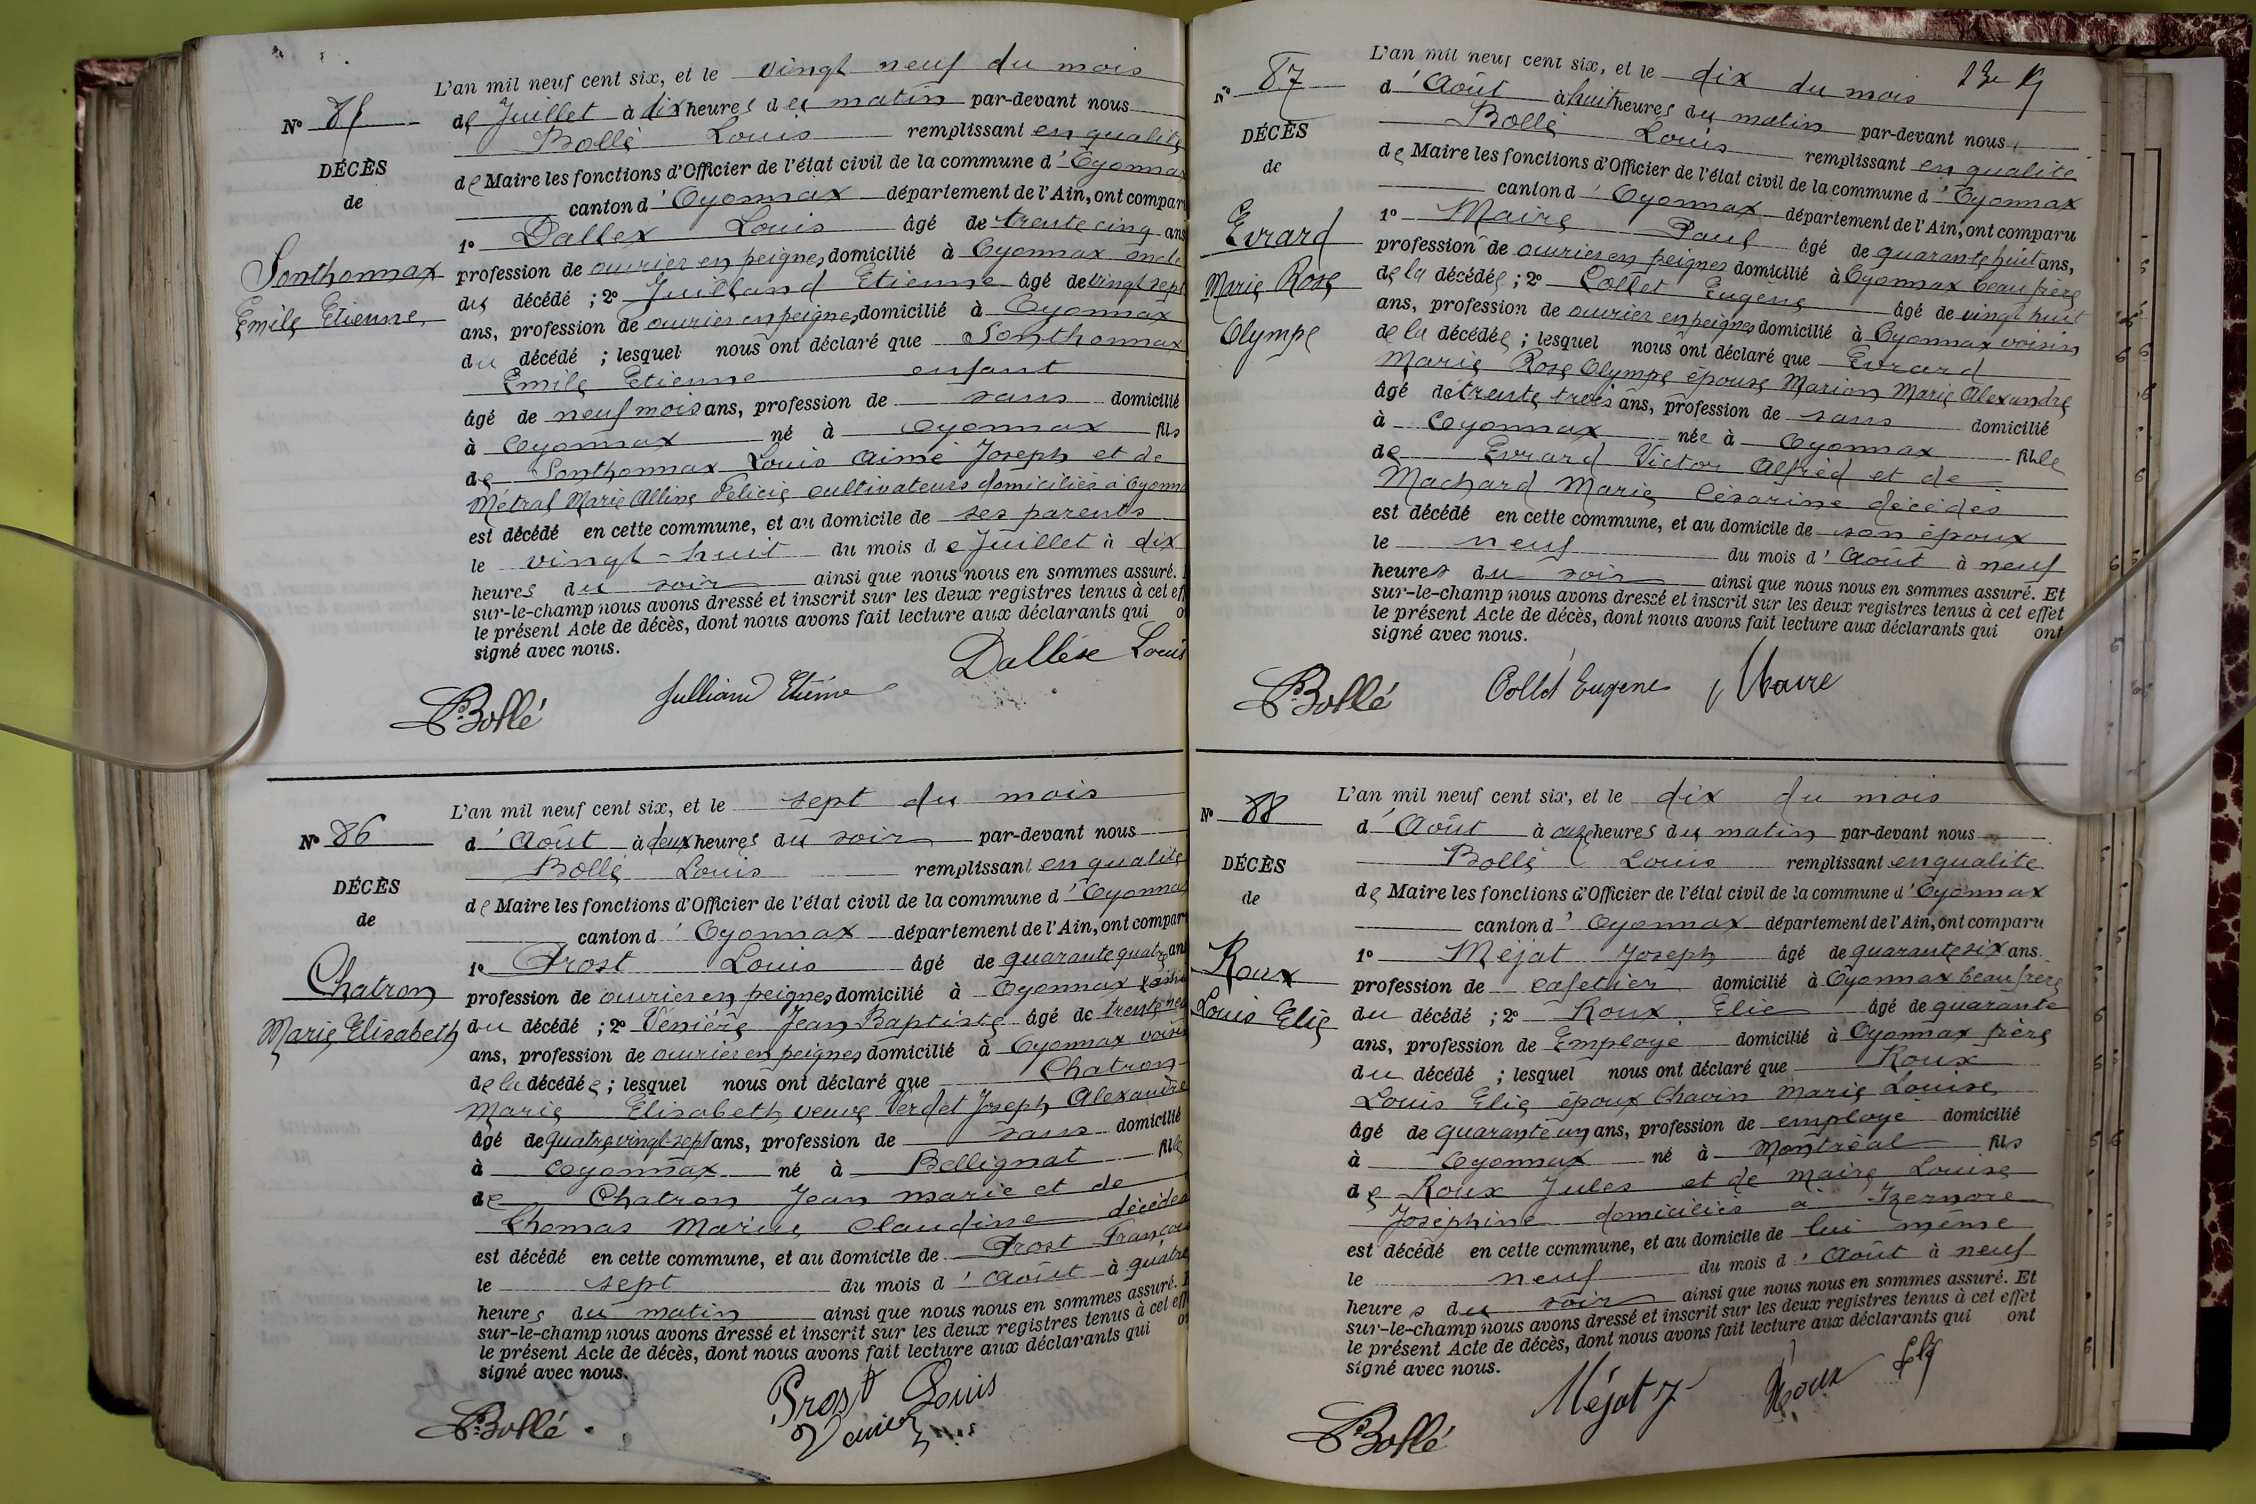 N° 85
DÉCÈS
de
Sonthonnax
Emile Etienne
L'an mil neuf cent six, et le vingt neuf du mois
de Juillet à dix heures du matin par-devant nous
Bollé Louis remplissant en qualité
de Maire les fonctions d'Officier de l'état civil de la commune d'Oyonnax
canton d'Oyonnax département de l'Ain, ont compar
1° Dallex Louis âgé de trente cinq ans
profession de ouvrier en peignes domicilié à Oyonnax oncle
du décédé ; 2° Juilland Etienne âgé de vingt sept
ans, profession de ouvrier en peignes domicilié à Oyonnax
du décédé ; lesquel nous ont déclaré que Sonthonnax
Emile Etienne enfant
âgé de neuf mois ans, profession de sans domicilié
à Oyonnax né à Oyonnax fils
de Sonthonnax Louis Aimé Joseph et de
Métral Marie Alline Félicie cultivateurs domiciliés à Oyonna
est décédé en cette commune, et au domicile de ses parents
le vingt-huit du mois de Juillet à dix
heures du soir ainsi que nous nous en sommes assuré.
sur-le-champ nous avons dressé et inscrit sur les deux registres tenus à cet eff
le présent Acte de décès, dont nous avons fait lecture aux déclarants qui o
signé avec nous.
Dallex Louis
Bollé Julliand Etienne
N° 86
DÉCÈS
de
Chatron
Marie Elisabeth
L'an mil neuf cent six, et le sept du mois
d'Août à deux heures du soir par-devant nous
Bollé Louis remplissant en qualité
de Maire les fonctions d'Officier de l'état civil de la commune d'Oyonnax
canton d'Oyonnax département de l'Ain, ont compar
1° Prost Louis âgé de quarante quatre ans
profession de ouvrier en peignes domicilié à Oyonnax
du décédé ; 2° Venière Jean Baptiste âgé de trente
ans, profession de ouvrier en peignes domicilié à Oyonnax voisin
de la décédée ; lesquel nous ont déclaré que Chatron
Marie Elisabeth veuve Verdet Joseph Alexandre
âgé de quatre vingt-sept ans, profession de sans domicilié
à Oyonnax né à Bellignat fille
de Chatron Jean Marie et de
Thomas Marie Claudine décédés
est décédé en cette commune, et au domicile de Prost François
le sept du mois d'Août à quatre
heures du matin ainsi que nous nous en sommes assuré.
sur-le-champ nous avons dressé et inscrit sur les deux registres tenus à cet eff
le présent Acte de décès, dont nous avons fait lecture aux déclarants qui o
signé avec nous.
Prost Louis
Bollé Venier
N° 87
DÉCÈS
de
Evrard
Marie Rose
Olympe
L'an mil neuf cent six, et le dix du mois
d'Août à huit heures du matin par-devant nous
Bollé Louis remplissant en qualité
de Maire les fonctions d'Officier de l'état civil de la commune d'Oyonnax
canton d'Oyonnax département de l'Ain, ont comparu
1° Maire Paul âgé de quarante huit ans,
profession de ouvrier en peignes domicilié à Oyonnax beau frère
de la décédée ; 2° Collet Eugène âgé de vingt huit
ans, profession de ouvrier en peignes domicilié à Oyonnax voisin
de la décédée ; lesquel nous ont déclaré que Evrard
Marie Rose Olympe épouse Marion Marie Alexandre
âgé de trente trois ans, profession de sans domicilié
à Oyonnax née à Oyonnax fille
de Evrard Victor Alfred et de
Machard Marie Césarine décédés
est décédé en cette commune, et au domicile de son époux
le neuf du mois d'Août à neuf
heures du soir ainsi que nous nous en sommes assuré. Et
sur-le-champ nous avons dressé et inscrit sur les deux registres tenus à cet effet
le présent Acte de décès, dont nous avons fait lecture aux déclarants qui ont
signé avec nous.
Bollé Collet Eugène Maire
N° 88
DÉCÈS
de
Roux
Louis Elie
L'an mil neuf cent six, et le dix du mois
d'Août à onze heures du matin par-devant nous
Bollé Louis remplissant en qualité
de Maire les fonctions d'Officier de l'état civil de la commune d'Oyonnax
canton d'Oyonnax département de l'Ain, ont comparu
1° Méjat Joseph âgé de quarante six ans
profession de cafetier domicilié à Oyonnax beau frère
du décédé ; 2° Roux Elie âgé de quarante
ans, profession de Employé domicilié à Oyonnax frère
du décédé ; lesquel nous ont déclaré que Roux
Louis Elie époux Chavin Marie Louise
âgé de quarante un ans, profession de employé domicilié
à Oyonnax né à Montréal fils
de Roux Jules et de Maire Louise
Joséphine domiciliés à Izernore
est décédé en cette commune, et au domicile de lui même
le neuf du mois d'Août à neuf
heures du soir ainsi que nous nous en sommes assuré. Et
sur-le-champ nous avons dressé et inscrit sur les deux registres tenus à cet effet
le présent Acte de décès, dont nous avons fait lecture aux déclarants qui ont
signé avec nous.
Bollé Méjat J Roux Elie